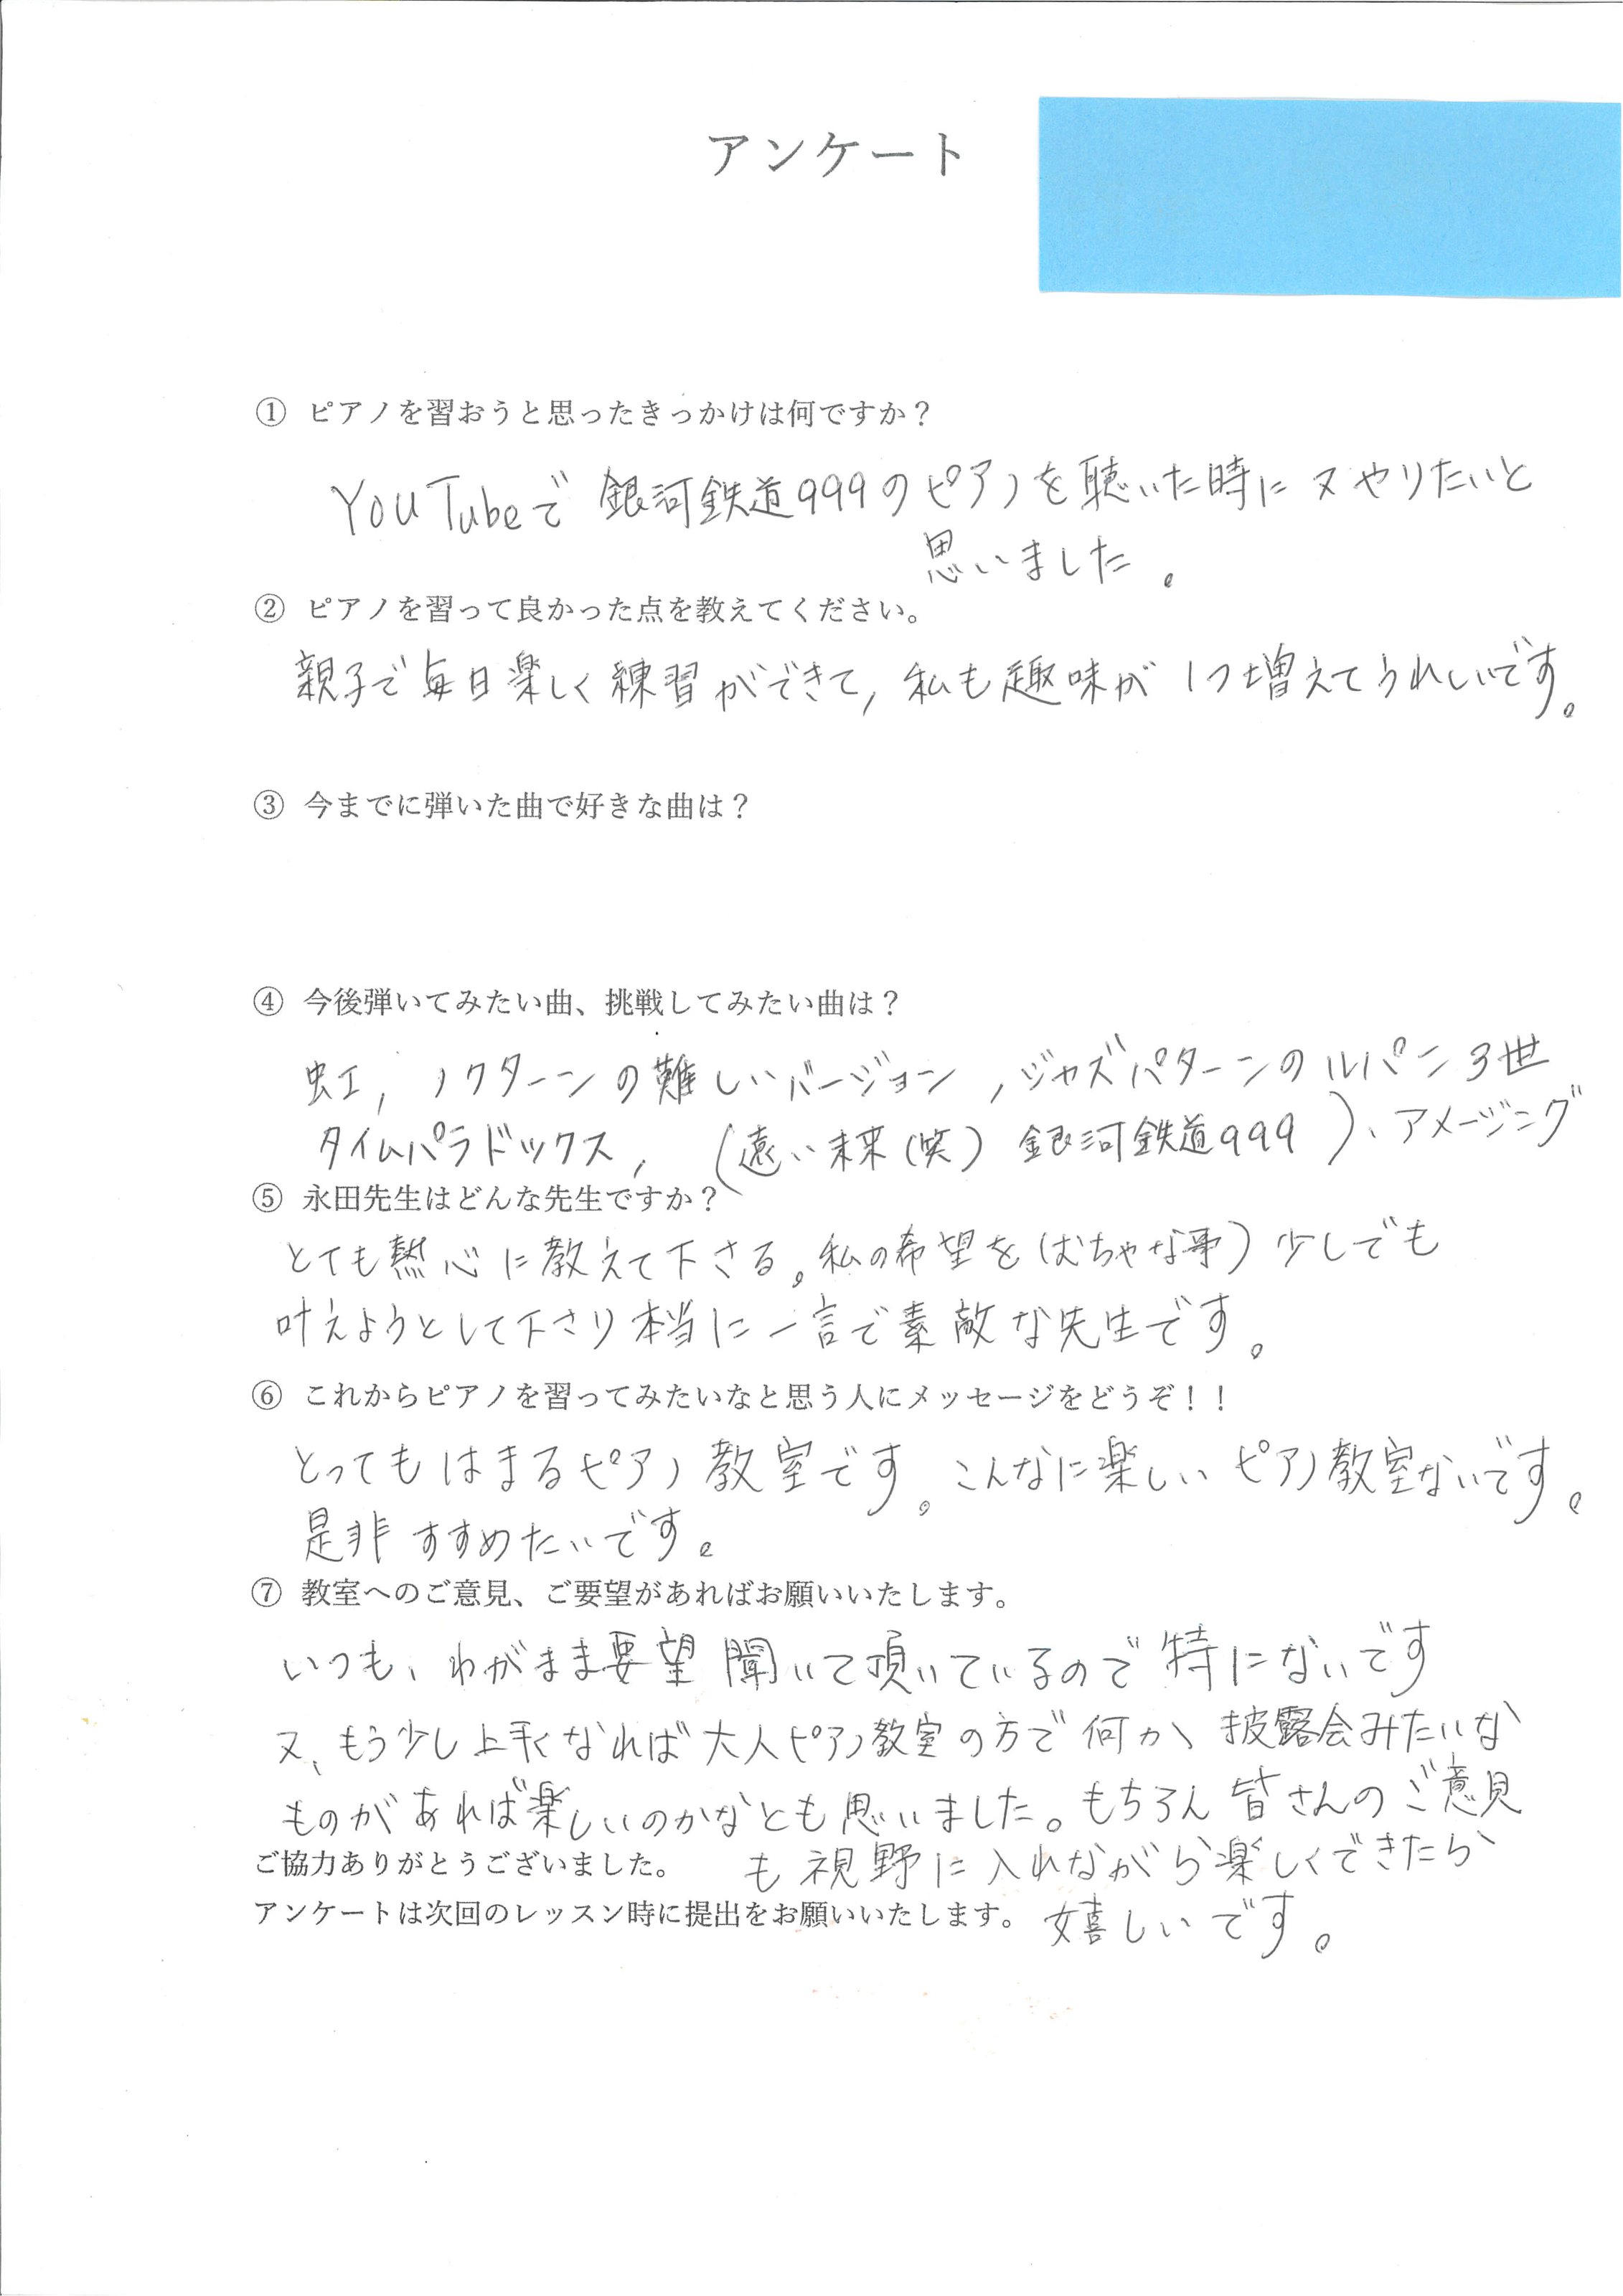 アンケート
① ピアノを習おうと思ったきっかけは何ですか？
YouTubeで銀河鉄道999のピアノを聴いた時に又やりたいと
思いました。
② ピアノを習って良かった点を教えてください。
親子で毎日楽しく練習ができて,私も趣味が1つ増えてうれしいです。
③ 今までに弾いた曲で好きな曲は？
④ 今後弾いてみたい曲、挑戦してみたい曲は？
虹,ノクターンの難しいバージョン,ジャズパターンのルパン3世
タイムパラドックス,(遠い未来(笑)銀河鉄道999)、アメージング
⑤ 永田先生はどんな先生ですか？
とても熱心に教えて下さる。私の希望を(むちゃな事)少しでも
叶えようとして下さり本当に一言で素敵な先生です。
⑥ これからピアノを習ってみたいなと思う人にメッセージをどうぞ！！
とってもはまるピアノ教室です。こんなに楽しいピアノ教室ないです。
是非すすめたいです。
⑦ 教室へのご意見、ご要望があればお願いいたします。
いつも、わがまま要望聞いて頂いているので特にないです
又、もう少し上手くなれば大人ピアノ教室の方で何か、披露会みたいな
ものがあれば楽しいのかなとも思いました。もちろん皆さんのご意見
も視野に入れながら楽しくできたら
嬉しいです。
ご協力ありがとうございました。
アンケートは次回のレッスン時に提出をお願いいたします。